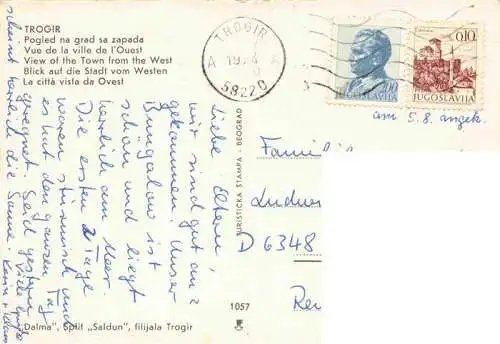 TROGIR
Pogled na grad sa zapada
Vue de la ville de l'Ouest
View of the Town from the West
Blick auf die Stadt vom Westen
La città vista da Ovest
TROGIR
A A
58220
2.00
JUGOSLAVIJA
0.10
JUGOSLAVIJA
am 5.8. angek.
Liebe Eltern,
wir sind gut an
gekommen. Unser
Bungalow ist
schön und liegt
herrlich am Meer.
Die ersten 2 Tage
waren stürmisch und
es hat den ganzen Tag
geregnet. Seid gestern
scheint herrlich die Sonne.
Viele Grüße
Karin +
TURISTICKA ŠTAMPA - BEOGRAD
Familie
D 6348
1057
Dalma", Split "Saldun", filijala Trogir